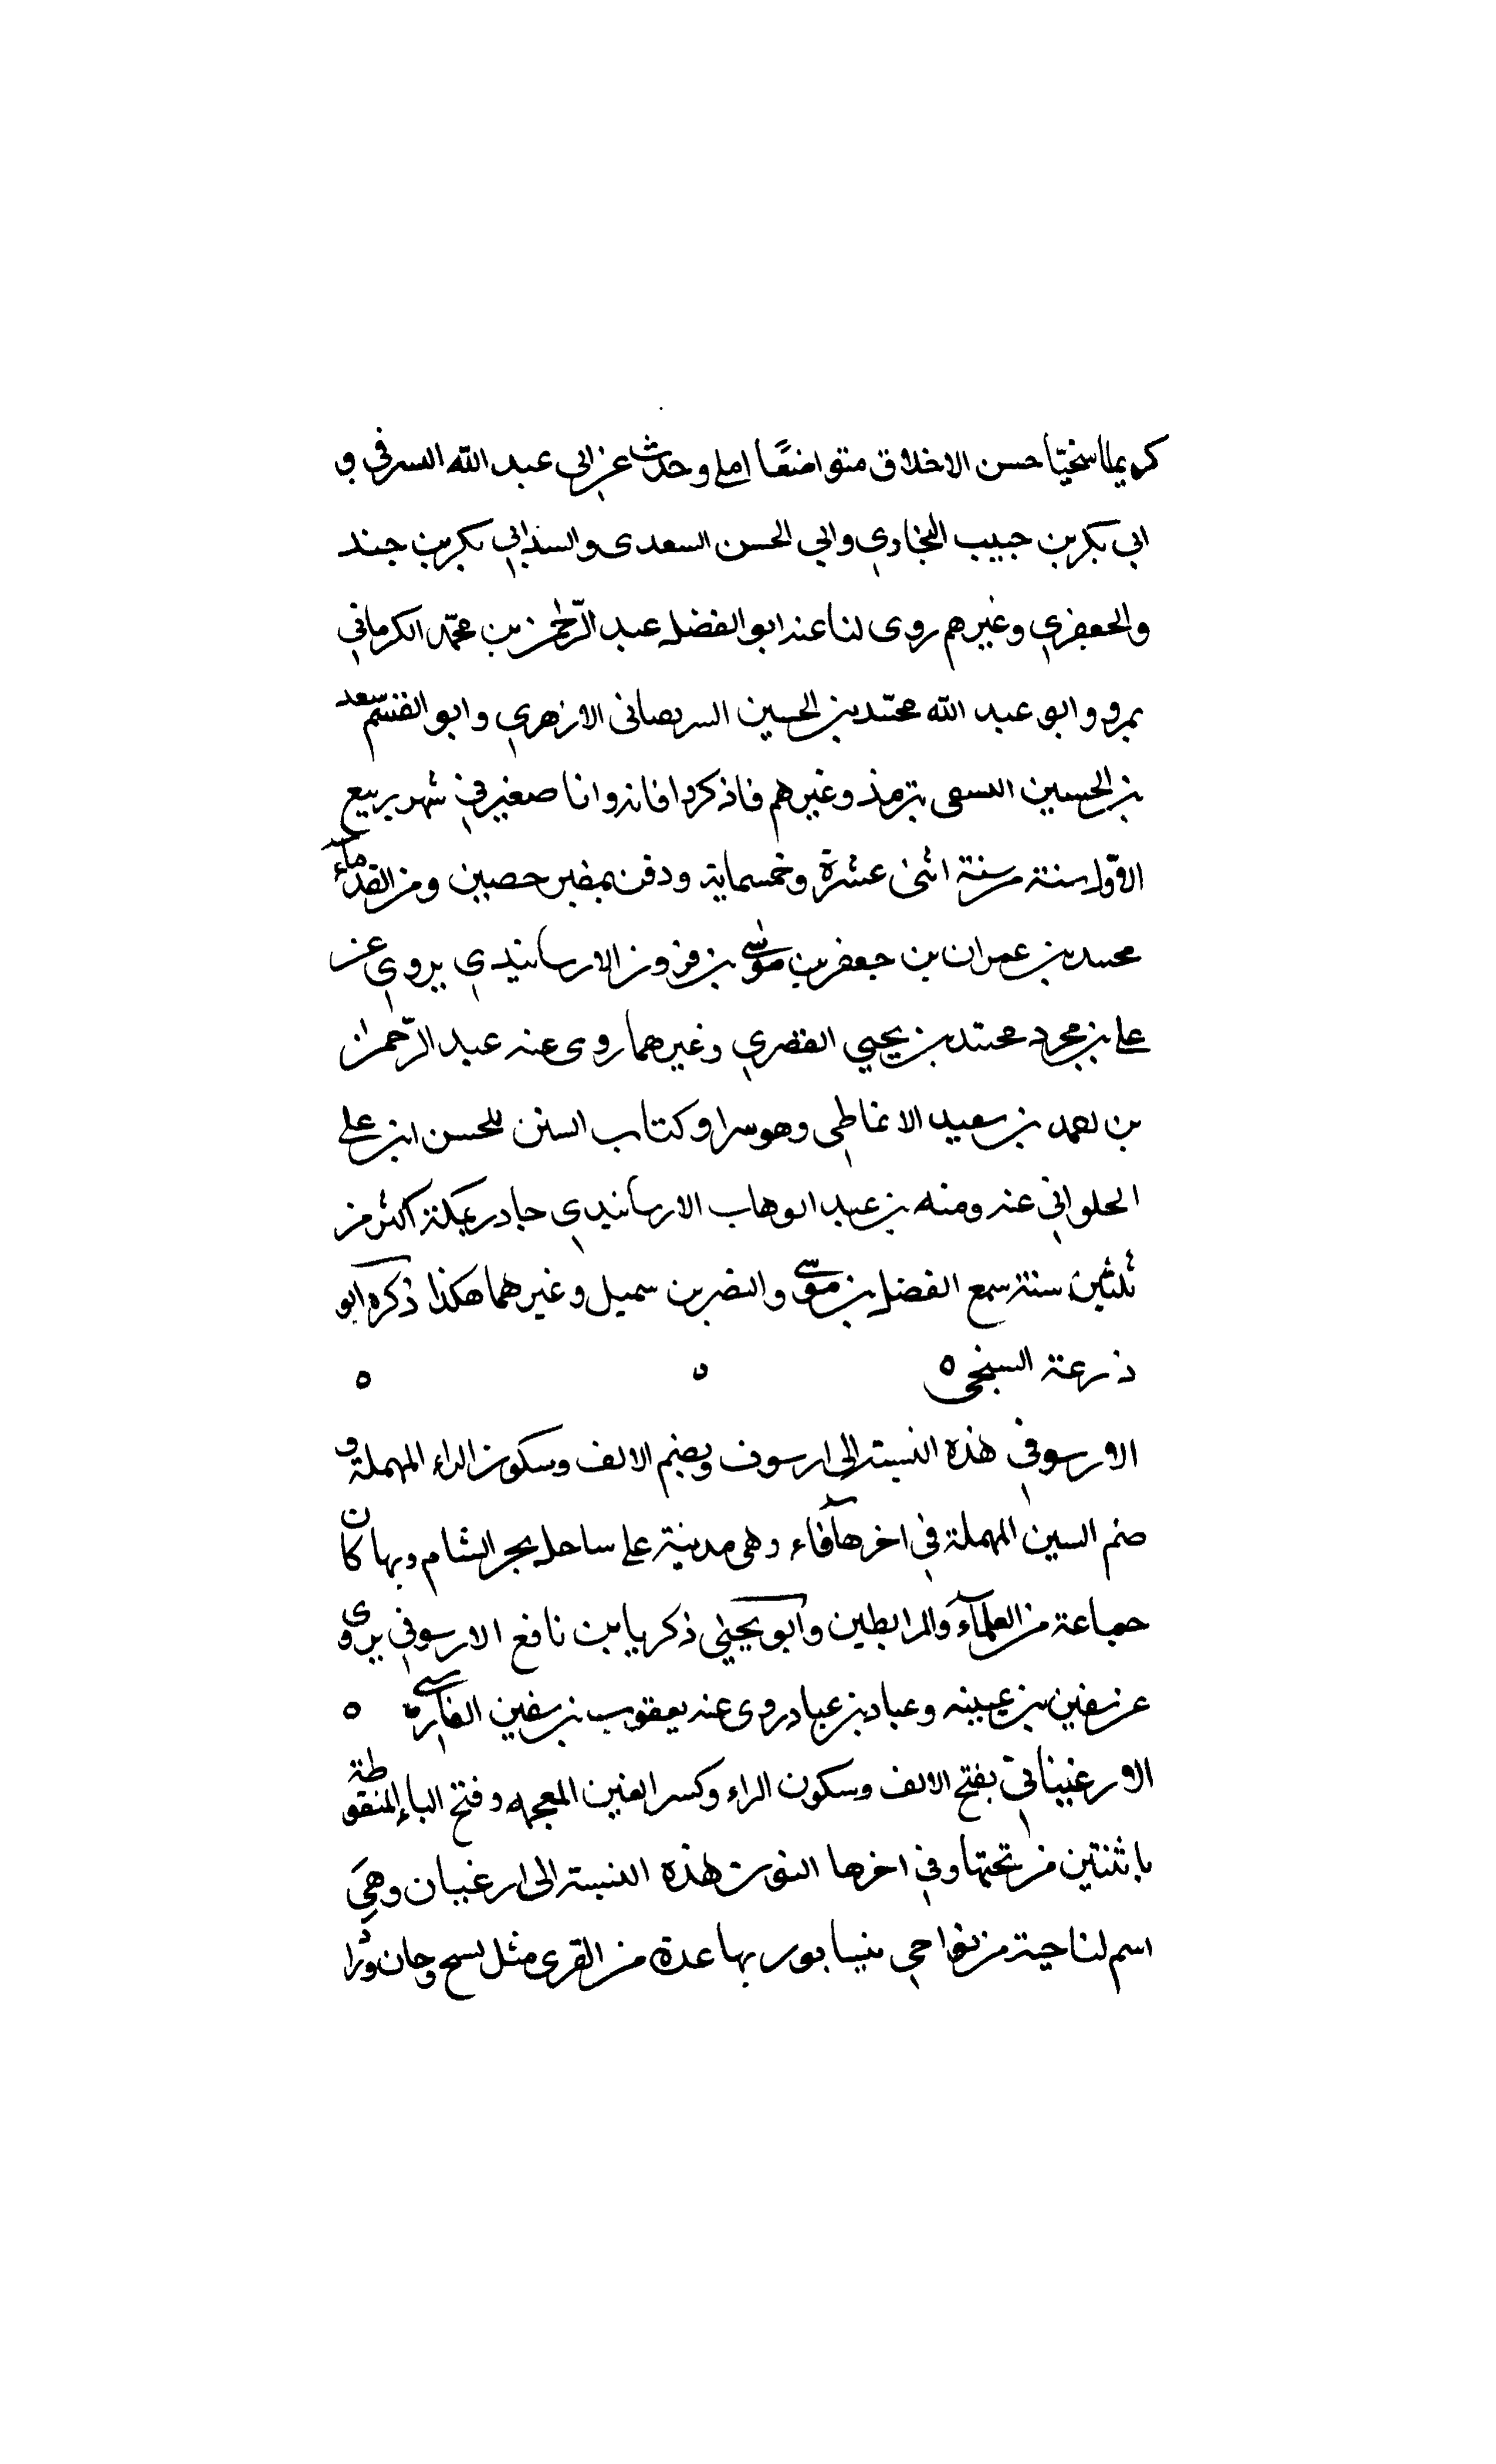 كريما سخيّا حسن الاخلاق متواضعًا املى وحدث عن ابى عبد الله السرفي و
ابي بكر بن حبيب البخاري وابي الحسن السعدى والسيد ابي بكر بن حيد
والجعفري وغيرهم روى لنا عنه ابو الفضل عبد الرّحمن بن محمّد الكرماني
بمرو وابو عبد الله محمّد بن الحسين السريصانى الازهري وابو القسم سعد
بن الحسين النسفى بترمذ وغيرهم فاذكر وفاته وانا صغير في شهر ربيع
الاوّل سنة سنة اثنى عشرة وخمسماية ودفن بمقبر حصين ومن القدماء
محمد بن عمران بن جعفر بن موسى بن فزوز الارسابندي يروي عن
على بن حجر ومحمّد بن يحيى القصري وغيرهما روى عنه عبد الرّحمن
بن احمد بن سعيد الانماطي وهو راو كتاب السنن للحسن ابن على
الحلواني عنه ومنه بن عبد الوهاب الارسابندي جاور بمكة اكثر من
ثلثين سنة سمع الفضل بن موسى والنضر بن سميل وغيرهما هكذا ذكره ابو
زرعة السنجى ٥ ٥ ٥
الارسوفي هذه النسبة الى ارسوف وبضم الالف وسكون الراء المهملة و
ضم السين المهملة في اخرها فاء وهى مدينة على ساحل بحر الشام وبها كان
جماعة من العلمآء والمرابطين وابو يحيى زكريا بن نافع الارسوفي يروى
عن سفين بن عيينه وعباد بن عباد روى عنه يعقوب بن سفين الفارسى ٥
الارغيانى بفتح الالف وسكون الراء وكسر الغين المعجمه وفتح الياء المنقوطة
باثنتين من تحتها وفي اخرها النون هذه النسبة الى ارغيان وهي
اسم لناحية من نواحي نيسابور بها عدة من القرى مثل